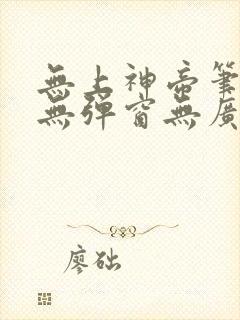 無上神帝筆
無彈窗無廣
廖础